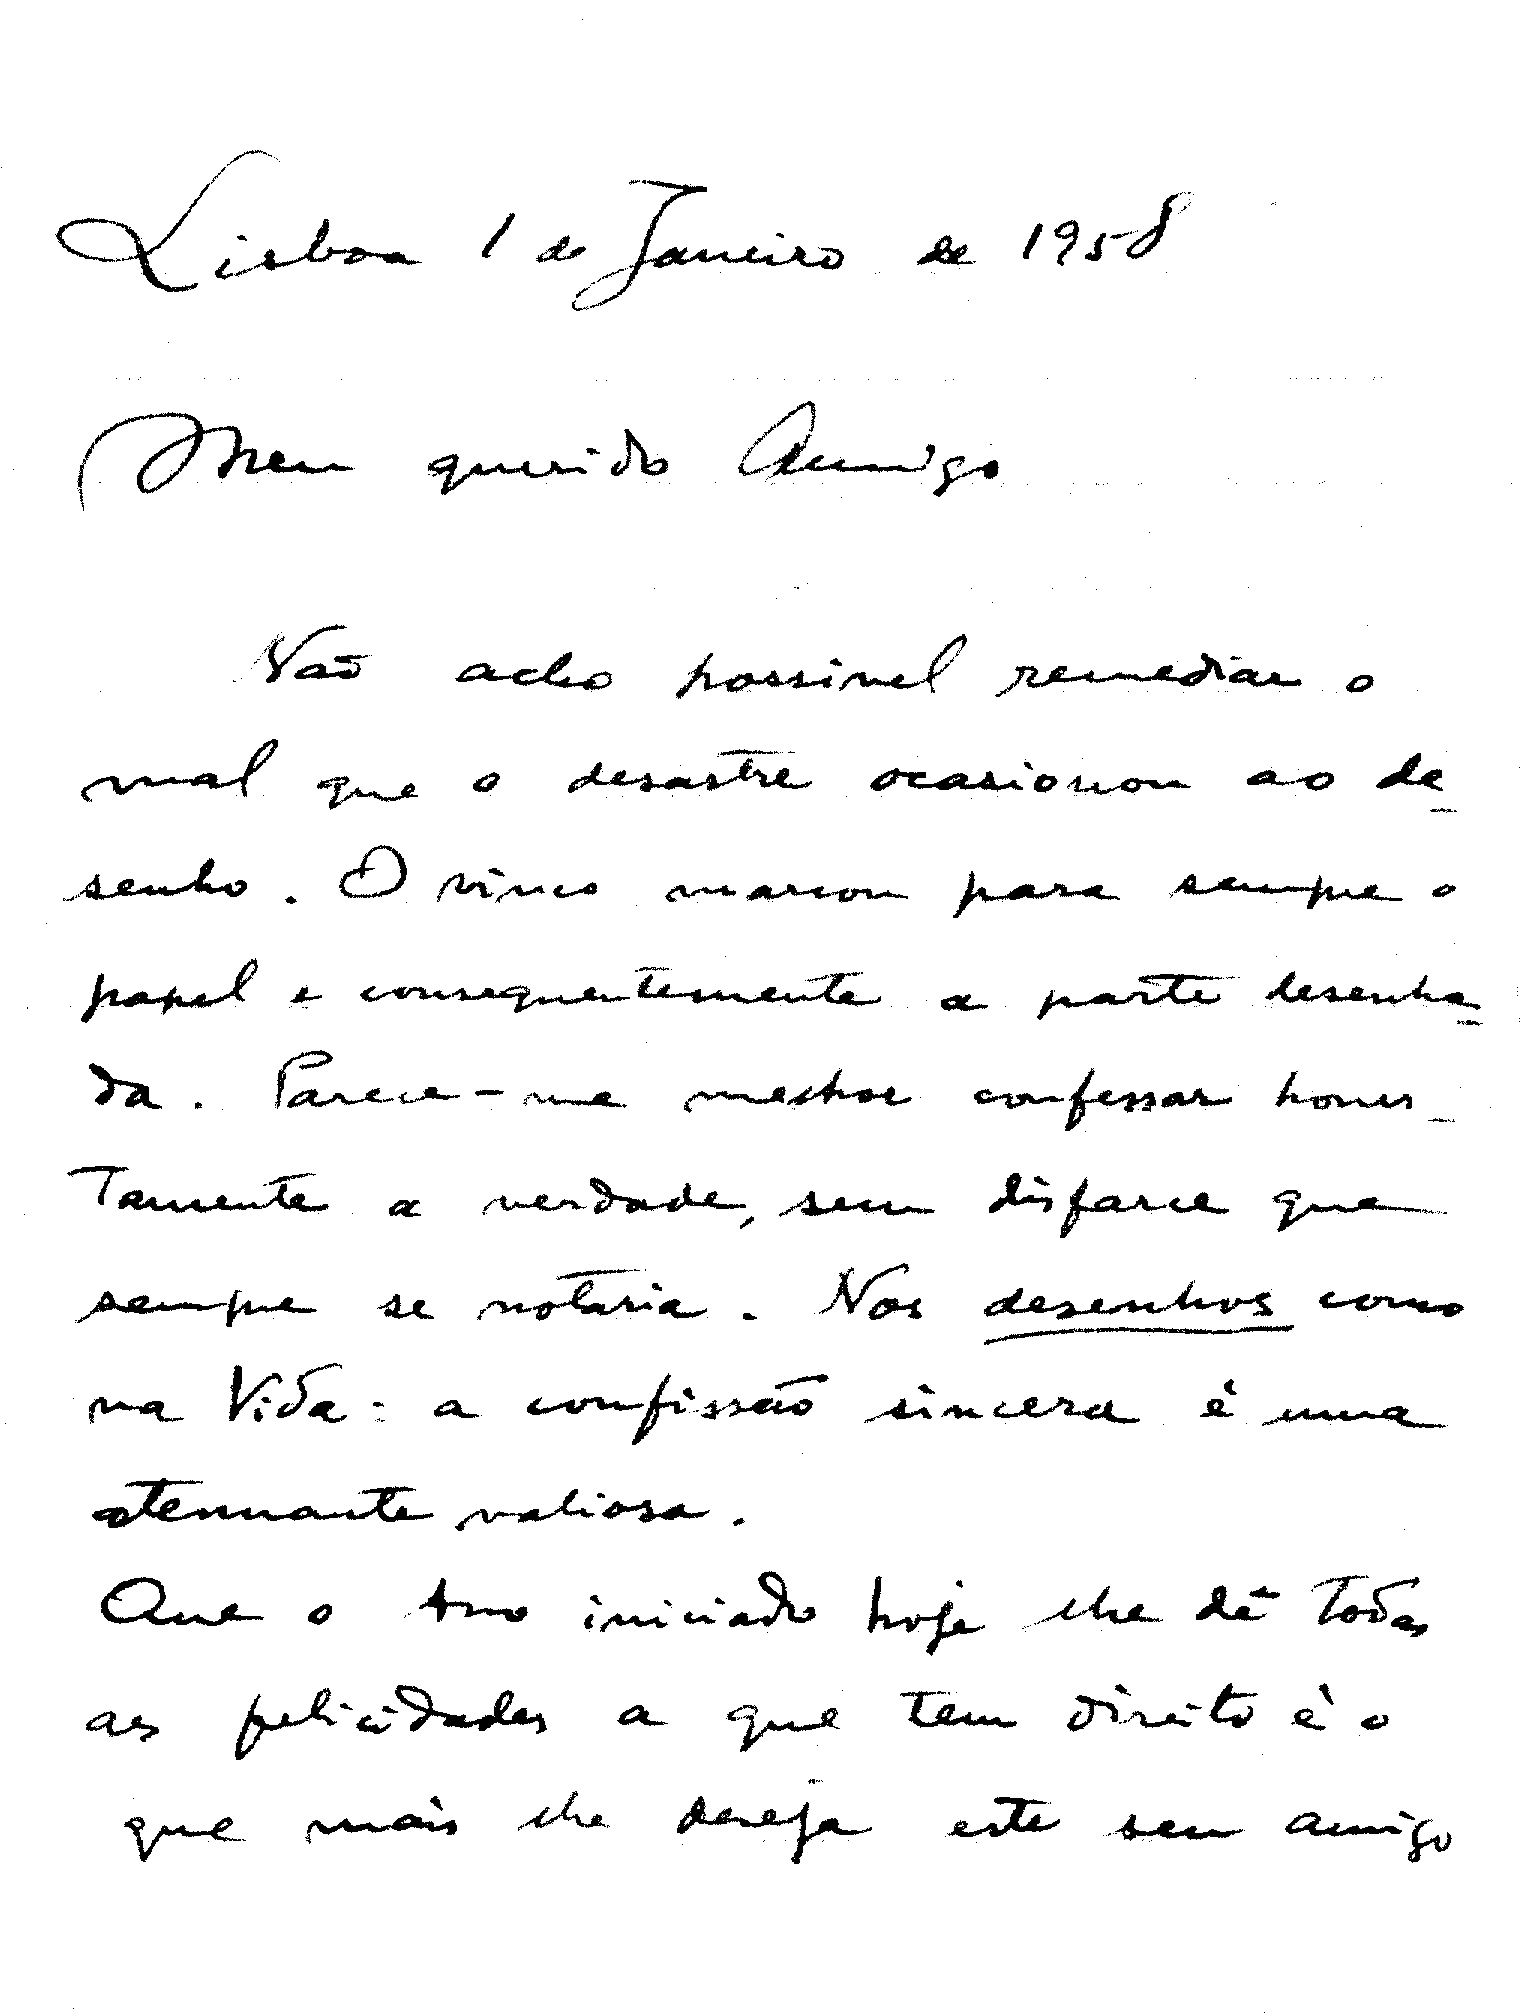 Lisboa 1 de Janeiro de 1958
Meu querido Amigo
Não acho possivel remediar o
mal que o desastre ocasionou ao de-
senho. O vinco marcou para sempre o
papel e consequentemente a parte desenha-
da. Parece-me melhor confessar hones-
tamente a verdade, sem disfarce que
sempre se notaria. Nos desenhos como
na Vida: a confissão sincera é uma
atenuante valiosa.
Que o Ano iniciado hoje lhe dê todas
as felicidades a que tem direito é o
que mais lhe deseja este seu amigo